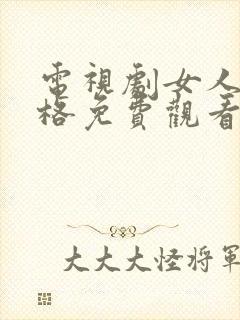 電視劇女人
格免費觀看
大大大怪将軍